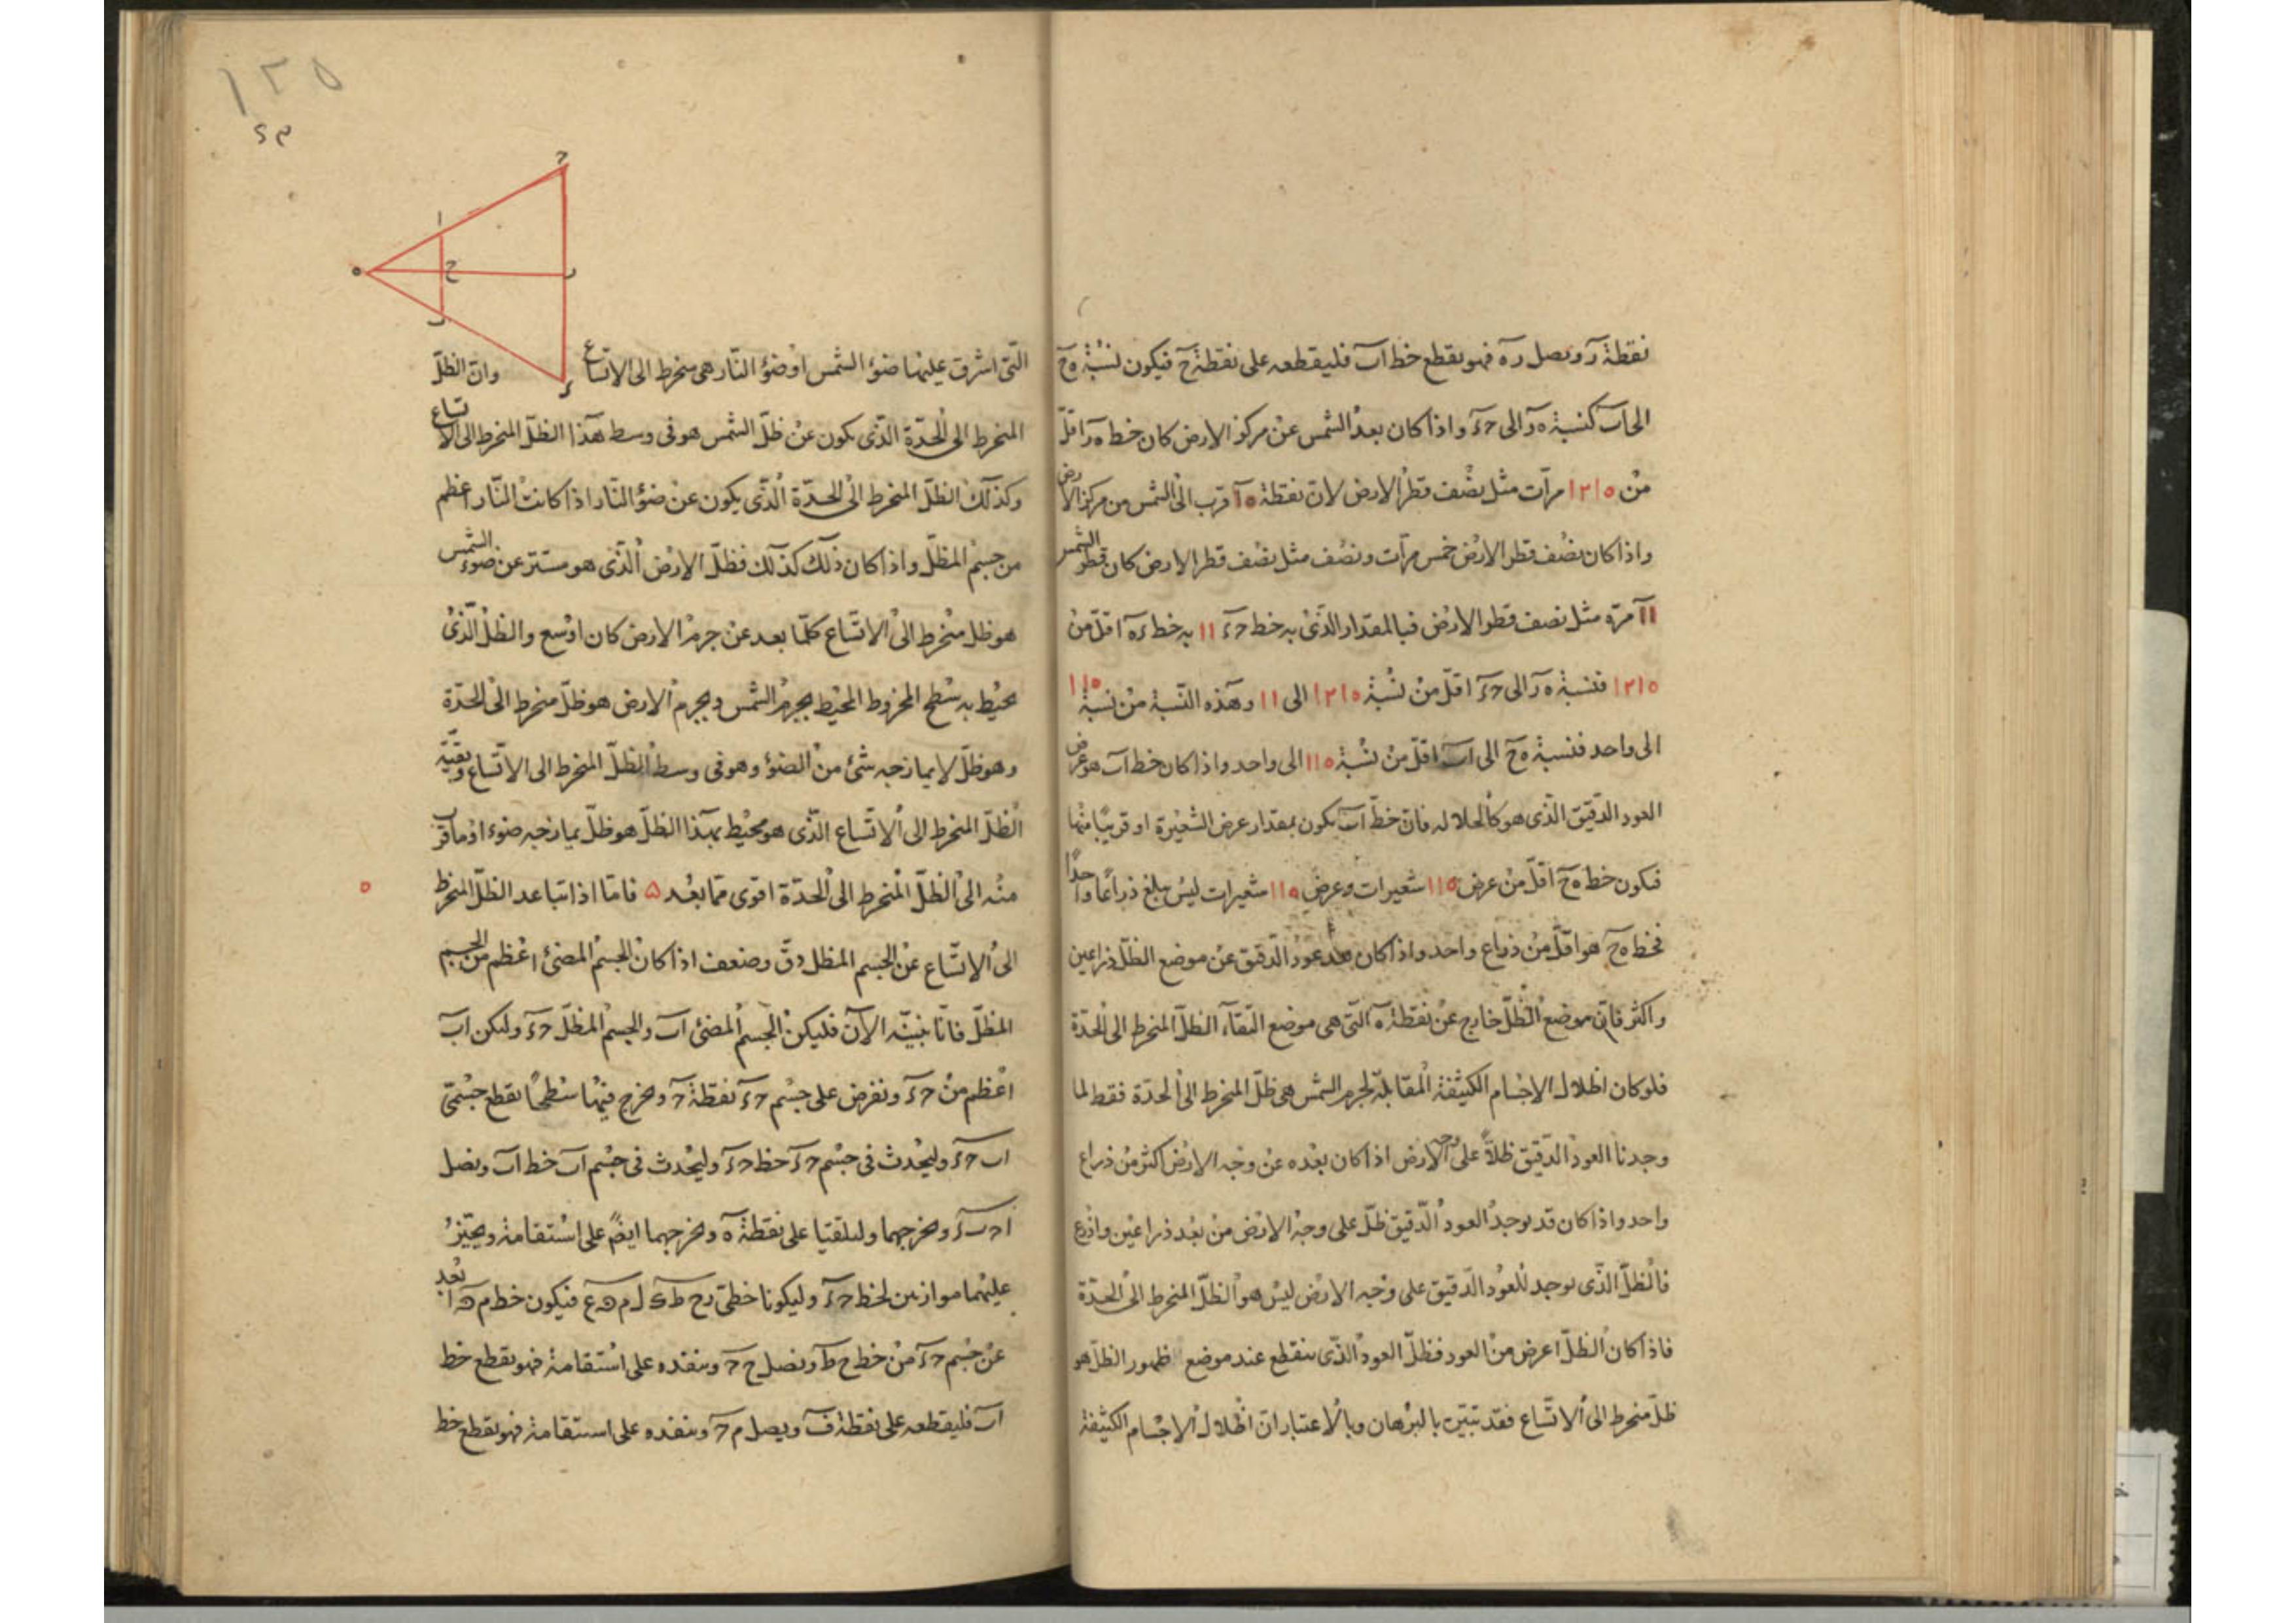 نقطة ر ونصل ره فهو يقطع خط اب فليقطعه على نقطة ح فيكون نسبة ه ح
الى اب كنسبة ه ر الى حء واذا كان بعد الشمس عن مركز الارض كان خط ه ر اقل
من ١٢١٥ مرات مثل نصف قطر الارض لان نقطة ه اقرب الى الشمس من مركز الارض
واذا كان نصف قطر الارض خمس مرات ونصف مثل نصف قطر الارض كان قطر الشمس
١١ مرة مثل نصف قطر الارض فبالمقدار الذى به خط حء ١١ به خط ره اقل من
١٢١٥ فنسبة ه ر الى حء اقل من نسبة ١٢١٥ الى ١١ وهذه النسبة من نسبة ١١٥
الى واحد فنسبة ه ح الى اب اقل من نسبة ١١٥ الى واحد واذا كان خط اب هو عرض
العود الدقيق الذى هو كالخلال فان خط اب يكون بمقدار عرض الشعيرة او قريبا منها
فيكون خط ه ح اقل من عرض ١١٥ شعيرات وعرض ١١٥ شعيرات ليس يبلغ ذراعا واحدا
فخط ه ح هو اقل من ذراع واحد واذا كان بعد عود الدقيق عن موضع الظل ذراعين
واكثر فان موضع الظل خارج عن نقطة ه التى هى موضع التقاء الظل المنخرط الى الحدة
فلو كان اظلال الاجسام الكثيفة المقابلة لجرم الشمس هى ظل المنخرط الى الحدة فقط لما
وجدنا العود الدقيق ظلا على وجه الارض اذا كان بعده عن وجه الارض اكثر من ذراع
واحد واذا كان قد يوجد العود الدقيق ظل على وجه الارض من بعد ذراعين واذرع
فالظل الذى يوجد للعود الدقيق على وجه الارض ليس هو الظل المنخرط الى الحدة
فاذا كان الظل اعرض من العود فظل العود الذى ينقطع عند موضع ظهور الظل هو
ظل منخرط الى الاتساع فقد تبين بالبرهان وبالاعتبار ان اظلال الاجسام الكثيفة
١٢٥
ح
ا
ه
ح
ر
ب
ء
التى اشرق عليها ضوء الشمس او ضوء النار هى منخرط الى الاتساع وان الظل
المنخرط الى الحدة الذى يكون عن ظل الشمس هو فى وسط هذا الظل المنخرط الى الاتساع
وكذلك الظل المنخرط الى الحدة الذى يكون عن ضوء النار اذا كانت النار اعظم
من جسم المظل واذا كان ذلك كذلك فظل الارض الذى هو مستتر عن ضوء الشمس
هو ظل منخرط الى الاتساع كلما بعد عن جرم الارض كان اوسع والظل الذى
يحيط به سطح المخروط المحيط بجرم الشمس وبجرم الارض هو ظل منخرط الى الحدة
وهو ظل لا يمازجه شئ من الضوء وهو فى وسط الظل المنخرط الى الاتساع وبقية
الظل المنخرط الى الاتساع الذى هو محيط بهذا الظل هو ظل يمازجه ضوء اذ ما قرب
منه الى الظل المنخرط الى الحدة اقوى مما بعد ه فاما اذا تباعد الظل المنخرط
الى الاتساع عن الجسم المظل دق وضعف اذا كان الجسم المضئ اعظم من الجسم
المظل فانا نبينه الآن فليكن الجسم المضئ اب والجسم المظل حء وليكن اب
اعظم من حء ونفرض على جسم حء نقطة ح ونخرج فيها سطحا يقطع جسمى
اب حء وليحدث فى جسم حء خط حء وليحدث فى جسم اب خط اب ونصل
اح بء ونخرجهما وليلتقيا على نقطة ه ونخرجهما ايضا على استقامة ونجيز
عليهما موازيين لخط حء وليكونا خطى فيكون خط ابعد
عن جسم حء من خط ح ط ونصل ح ح وننفده على استقامة فهو يقطع خط
اب فليقطعه على نقطة ف ويصل م ح وننفده على استقامة فهو يقطع خط